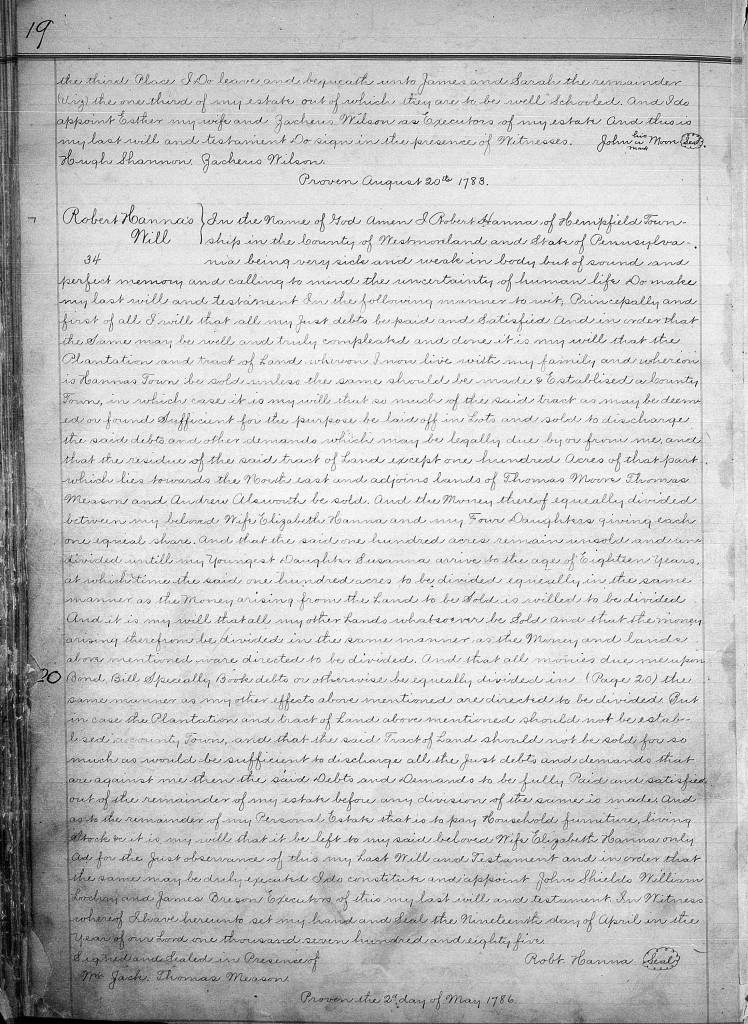 19
the third Place I Do leave and bequeath unto James and Sarah the remainder
(Viz) the one third of my estate out of which they are to be well Schooled. And I do
appoint Esther my wife and Zacheus Wilson as Executors of my estate And this is
my last will and testament Do sign in the presence of Witnesses. John his mark Moon Seal
Hugh Shannon. Zacheus Wilson.
Proven August 20th 1783.
Robert Hanna's
Will
34
In the Name of God Amen I Robert Hanna of Hempfield Town-
ship in the County of Westmoreland and State of Pennsylva-
nia being very sick and weak in body but of sound and
perfect memory and calling to mind the uncertainty of human life Do make
my last will and testament In the following manner to wit, Principally and
first of all I will that all my Just debts be paid and Satisfied And in order that
the Same may be well and truly compleated and done it is my will that the
Plantation and tract of Land whereon I now live with my family and whereon
is Hannas Town be sold unless the same should be made & Establised a County
Town, in which case it is my will that so much of the said tract as may be deem-
ed or found Sufficient for the purpose be laid off in Lots and sold to discharge
the said debts and other demands which may be legally due by or from me, and
that the residue of the said tract of Land except one hundred Acres of that part
which lies towards the North east and adjoins lands of Thomas Moore Thomas
Meason and Andrew Alsworth be sold. And the Money thereof equeally divided
between my beloved Wife Elizabeth Hanna and my Four Daughters giving each
one equeal share. And that the said one hundred acres remain unsold and un-
divided untill my Youngest Daughter Susanna arrive to the age of Eighteen Years,
at which time the said one hundred acres to be divided equeally in the same
manner as the Money arising from the Land to be Sold is willed to be divided
And it is my will that all my other Lands whatsoever be Sold and that the money
arising therefrom be divided in the same manner as the Money and lands
above mentioned ware directed to be divided. And that all monies due me upon
20 Bond, Bill Specially Book debts or otherwise be equeally divided in (Page 20) the
same manner as my other effects above mentioned are directed to be divided. But
in case the Plantation and tract of Land above mentioned should not be estab-
lised account Town, and that the said Tract of Land should not be sold for so
much as would be sufficient to discharge all the Just debts and demands that
are against me then the said Debts and Demands to be fully Paid and satisfied
out of the remainder of my estate before any division of the same is made. And
as to the remainder of my Personal Estate that is to pay Household furniture, living
stock &c it is my will that it be left to my said beloved Wife Elizabeth Hanna only
Ad for the Just observance of this my Last Will and Testament and in order that
the same may be duly executed I do constitute and appoint John Shields William
and James Breson Executors of this my last will and testament. In Witness
whereof I have hereunto set my hand and Seal the Nineteenth day of April in the
Year of our Lord one thousand seven hundred and eighty five.
Signed and Sealed in Presence of Robt Hanna Seal
Wm Jack. Thomas Meason.
Proven the 2d day of May 1786.